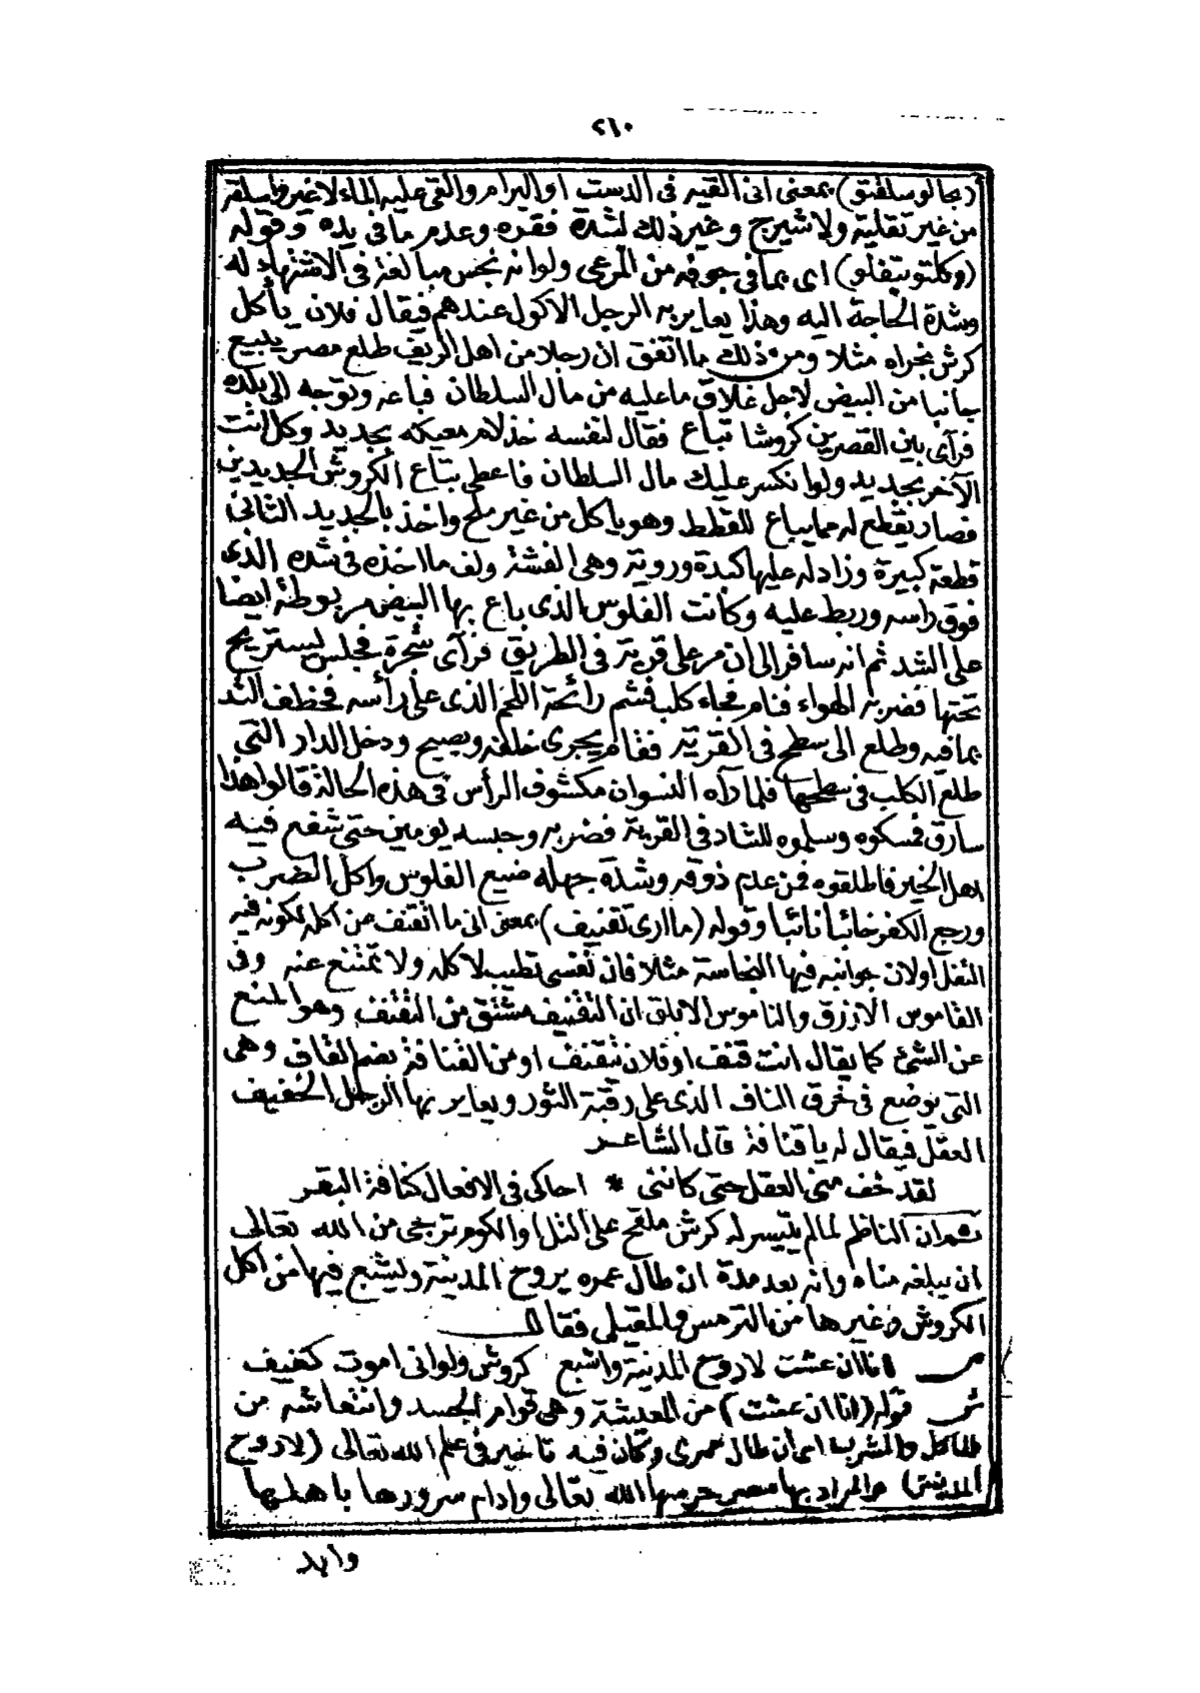 ٢١٠
(بحالو سلقتو) بمعنى انى القيه فى الدست او البرام والقى عليه الماء لا غير واسلقه
من غير تقلية ولا شيرج وغير ذلك لشدة فقره وعدم ما فى يده وقوله
(وكلتو بتفلو) اى بما فى جوفه من المرعى ولو انه نجس مبالغة فى الاشتهاء له
وشدة الحاجة اليه وهذا يعاير به الرجل الاكول عندهم فيقال فلان يأكل
كرش بخراه مثلا ومن ذلك ما اتفق ان رجلا من اهل الريف طلع مصر يبيع
جانبا من البيض لاجل غلاق ما عليه من مال السلطان فباعه وتوجه الى بلده
فرآى بين القصرين كروشا تباع فقال لنفسه خذ لام معيكه بجديد وكل انت
الآخر بجديد ولو انكسر عليك مال السلطان فاعطى بتاع الكروش الجديدين
فصار يقطع له مما يباع للقطط وهو ياكل من غير ملح واخذ بالجديد الثانى
قطعة كبيرة وزاد له عليها كبدة وروية وهى الفشة ولف ما اخذه فى شده الذى
فوق راسه وربط عليه وكانت الفلوس الذى باع بها البيض مربوطة ايضا
على الشد ثم انه سافر الى ان مر على قرية فى الطريق فرآى شجرة فجلس ليستريح
تحتها فضربه الهواء فنام فجاء كلب فشم رائحة اللحم الذى على رأسه فخطف الشد
بما فيه وطلع الى سطح فى القرية فقام يجرى خلفه ويصيح ودخل الدار التى
طلع الكلب فى سطحها فلما رآه النسوان مكشوف الرأس فى هذه الحالة قالوا هذا
سارق فمسكوه وسلموه للشاد فى القرية فضربه وحبسه يومين حتى شفع فيه
اهل الخير فاطلقوه فمن عدم ذوقه وشدة جهله ضيع الفلوس واكل الضرب
ورجع الكفر خائبا نائبا وقوله (ما ارى تقنيف) بمعنى انى ما اتقنف عن اكله لكونه فيه
التفل او لان جوانبه فيها النجاسة مثلا فان نفسى تطيب لاكله ولا تمتنع عنه وفى
القاموس الازرق والناموس الابلق ان التقنيف مشتق من التقنف وهو المنع
عن الشئ كما يقال انت قنف او فلان تقنف او من القنافة بضم القاف وهى
التى توضع فى خرق الناف الذى على رقبة الثور ويعاير بها الرجل الخفيف
العقل فيقال له يا قنافة قال الشاعر
لقد خف منى العقل حتى كاننى * احاكى فى الافعال كنافة البقر
ثم ان الناظم لما لم يتيسر له كرش ملقح على التل او الكوم ترجى من الله تعالى
ان يبلغه مناه وانه بعد مدة ان طال عمره يروح المدينة ويشبع فيها من اكل
الكروش وغيرها من الترمس والمقيلى فقال
ص انا ان عشت لاروح المدينة واشبع كروش ولو انى اموت كفيف
ش قوله (انا ان عشت) من المعيشة وهى قوام الجسد وانتعاشه من
المأكل والمشرب اى ان طال عمرى وكان فيه تاخير فى علم الله تعالى (لاروح
المدينة) والمراد بها مصر حرسها الله تعالى وادام سرورها باهلها
وابد